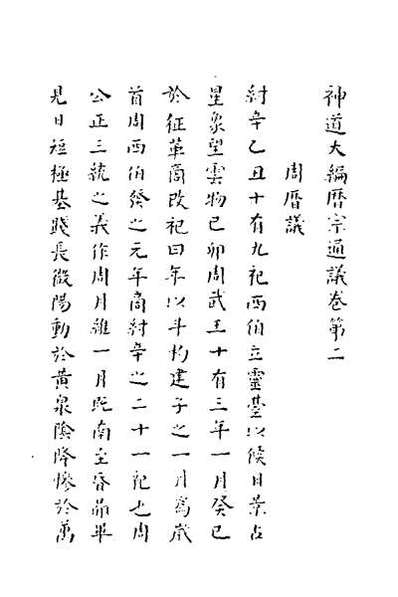 神道大編曆宗通議卷第二
周曆議
紂辛乙丑十有九祀西伯立靈臺以候日景占
星象望雲物己卯周武王十有三年一月癸巳
於征革商改祀曰年以斗杓建子之一月為歲
首周西伯發之元年商紂辛之二十一祀也周
公正三統之義作周月維一月既南至昏昴畢
見日短極基踐長微陽動於黃泉陰降慘於萬